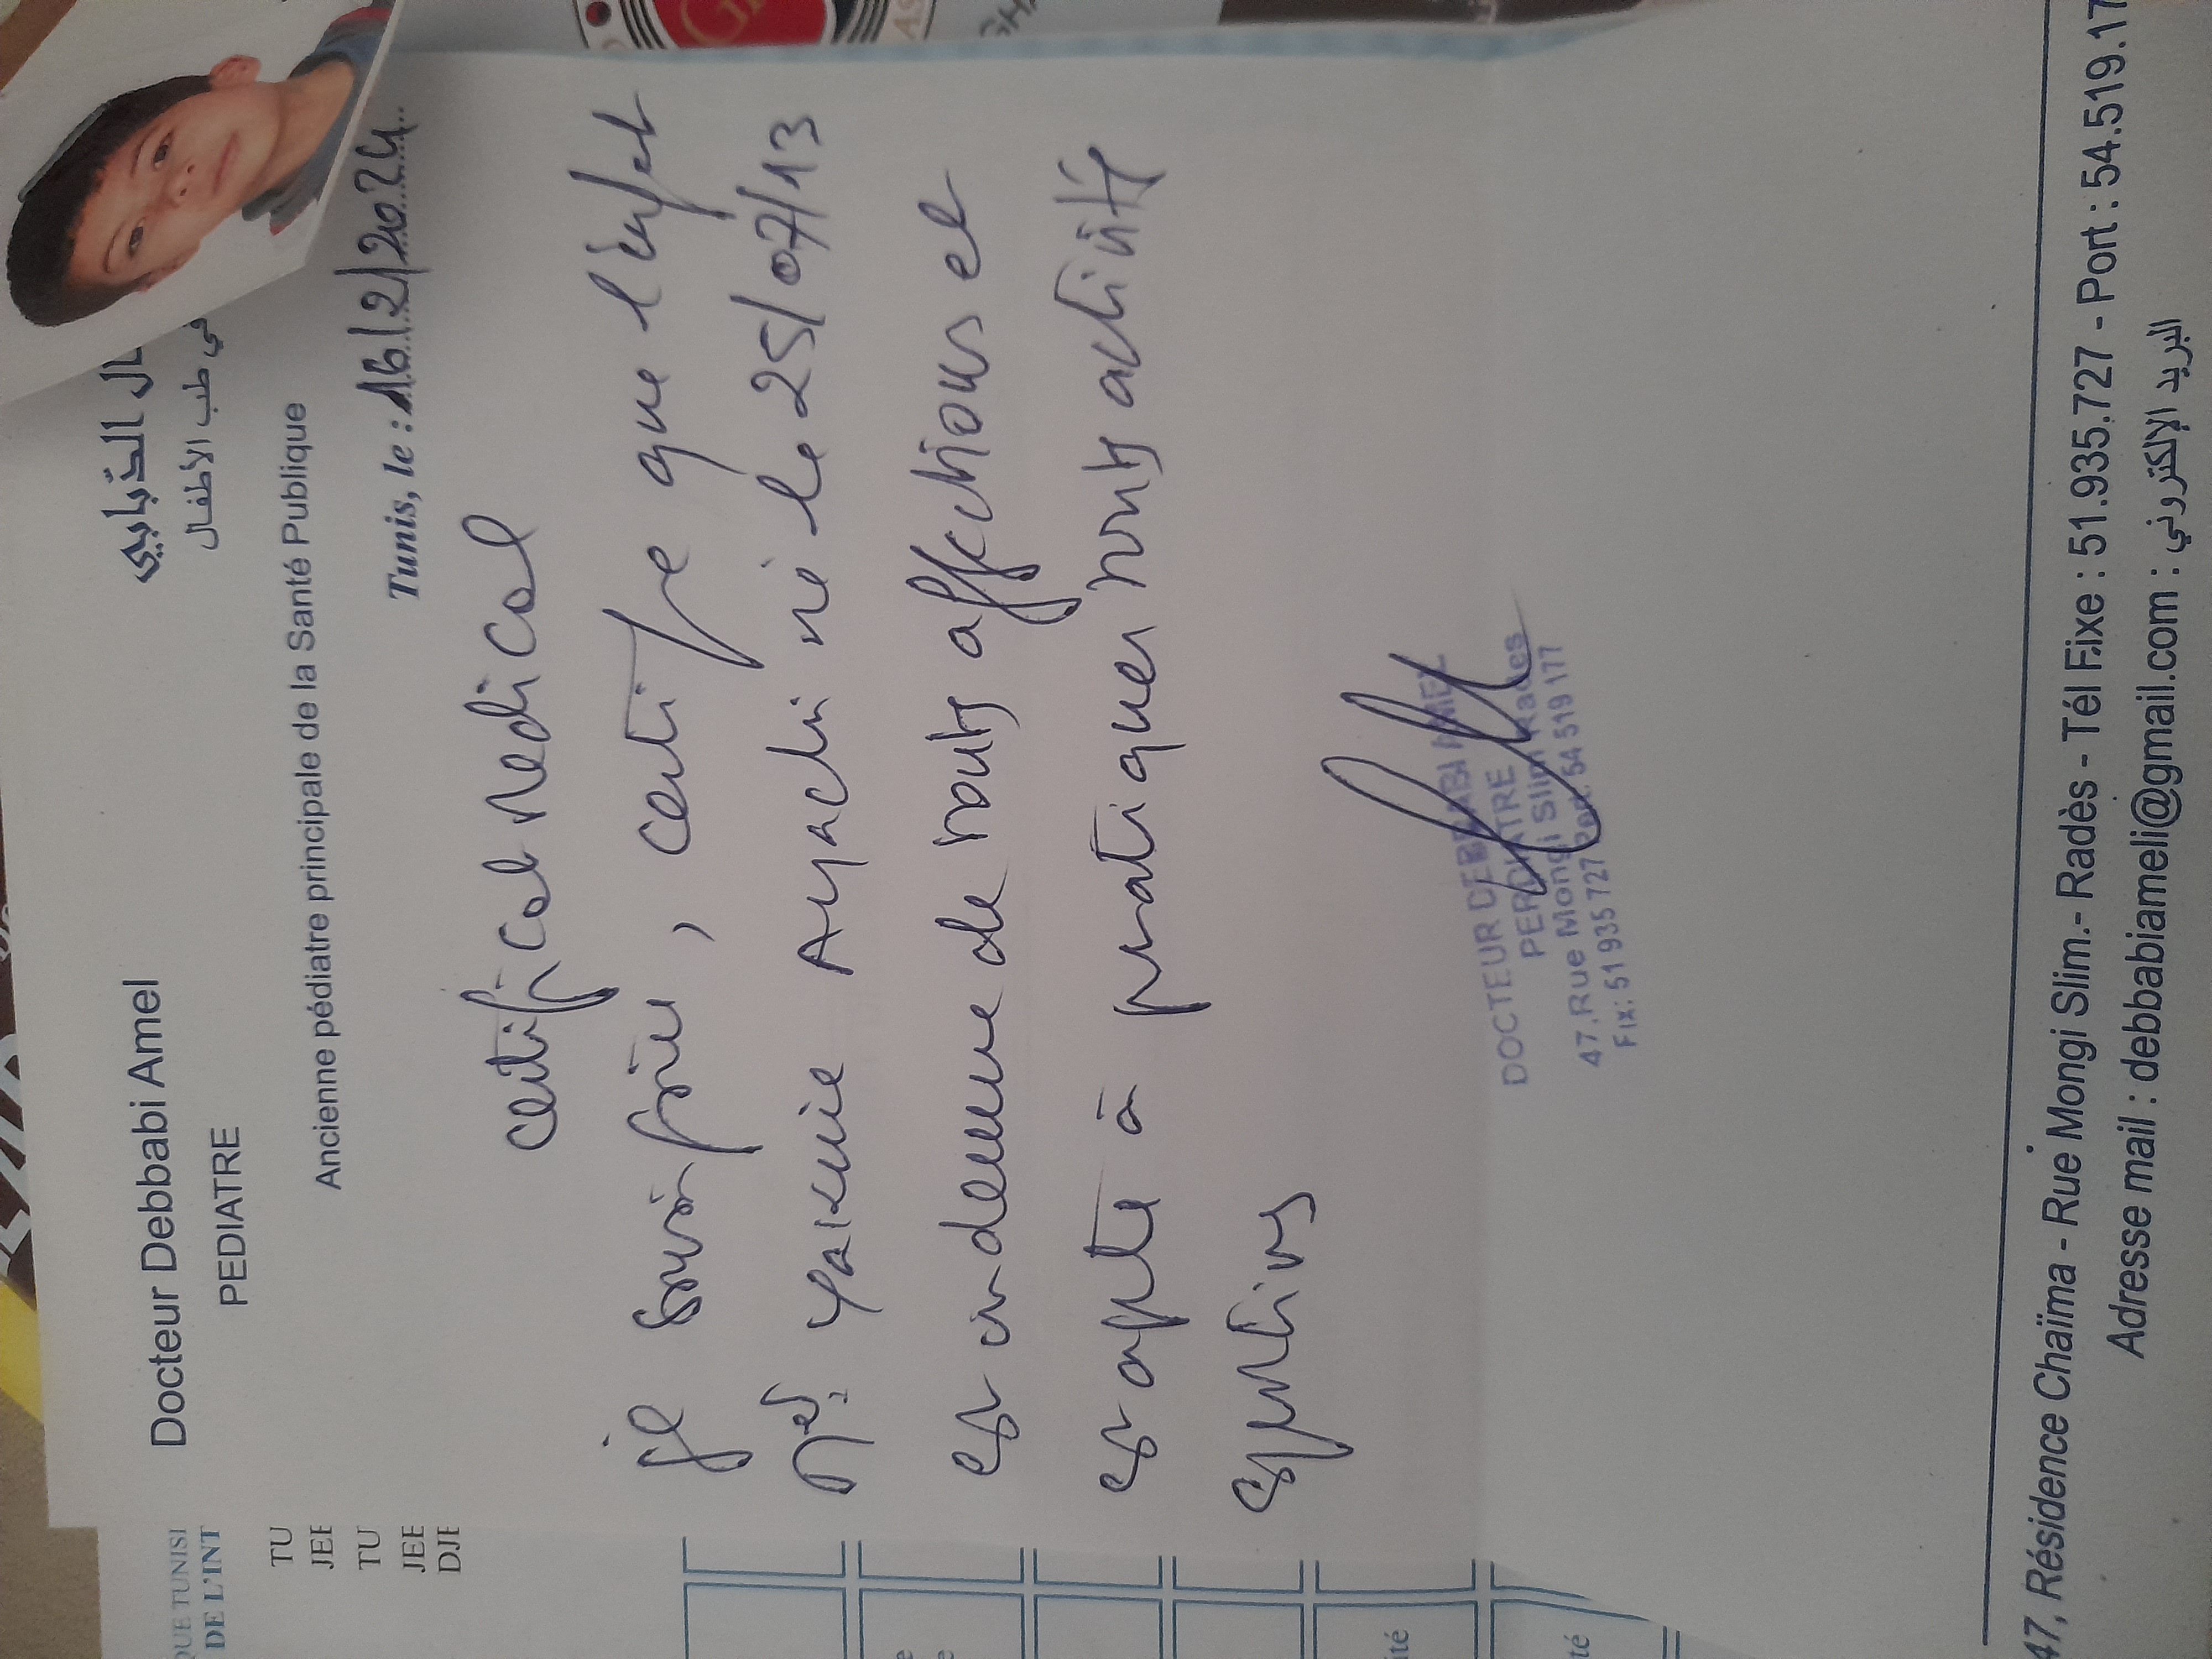 Docteur Debbabi Amel
PEDIATRE
ال الدّبابي
في طب الأطفال
Ancienne pédiatre principale de la Santé Publique
Tunis, le : 16/2/2024
Certificat Medical
je soussigné, certifie que l'enfant
Ayachi né le 25/07/13
est indemne de touts affections et
est apte à pratiquer touts activité
sportives
DOCTEUR DEBBABI AMEL
PEDIATRE
47, Rue Mongi Slim Rades
Fix: 51 935 727 Port: 54 519 177
47, Résidence Chaïma - Rue Mongi Slim.- Radès - Tél Fixe : 51.935.727 - Port : 54.519.17
Adresse mail : debbabiameli@gmail.com : البريد الإلكتروني
QUE TUNISI
DE L'INT
TU
JEE
TU
JEE
DJE
ité
té